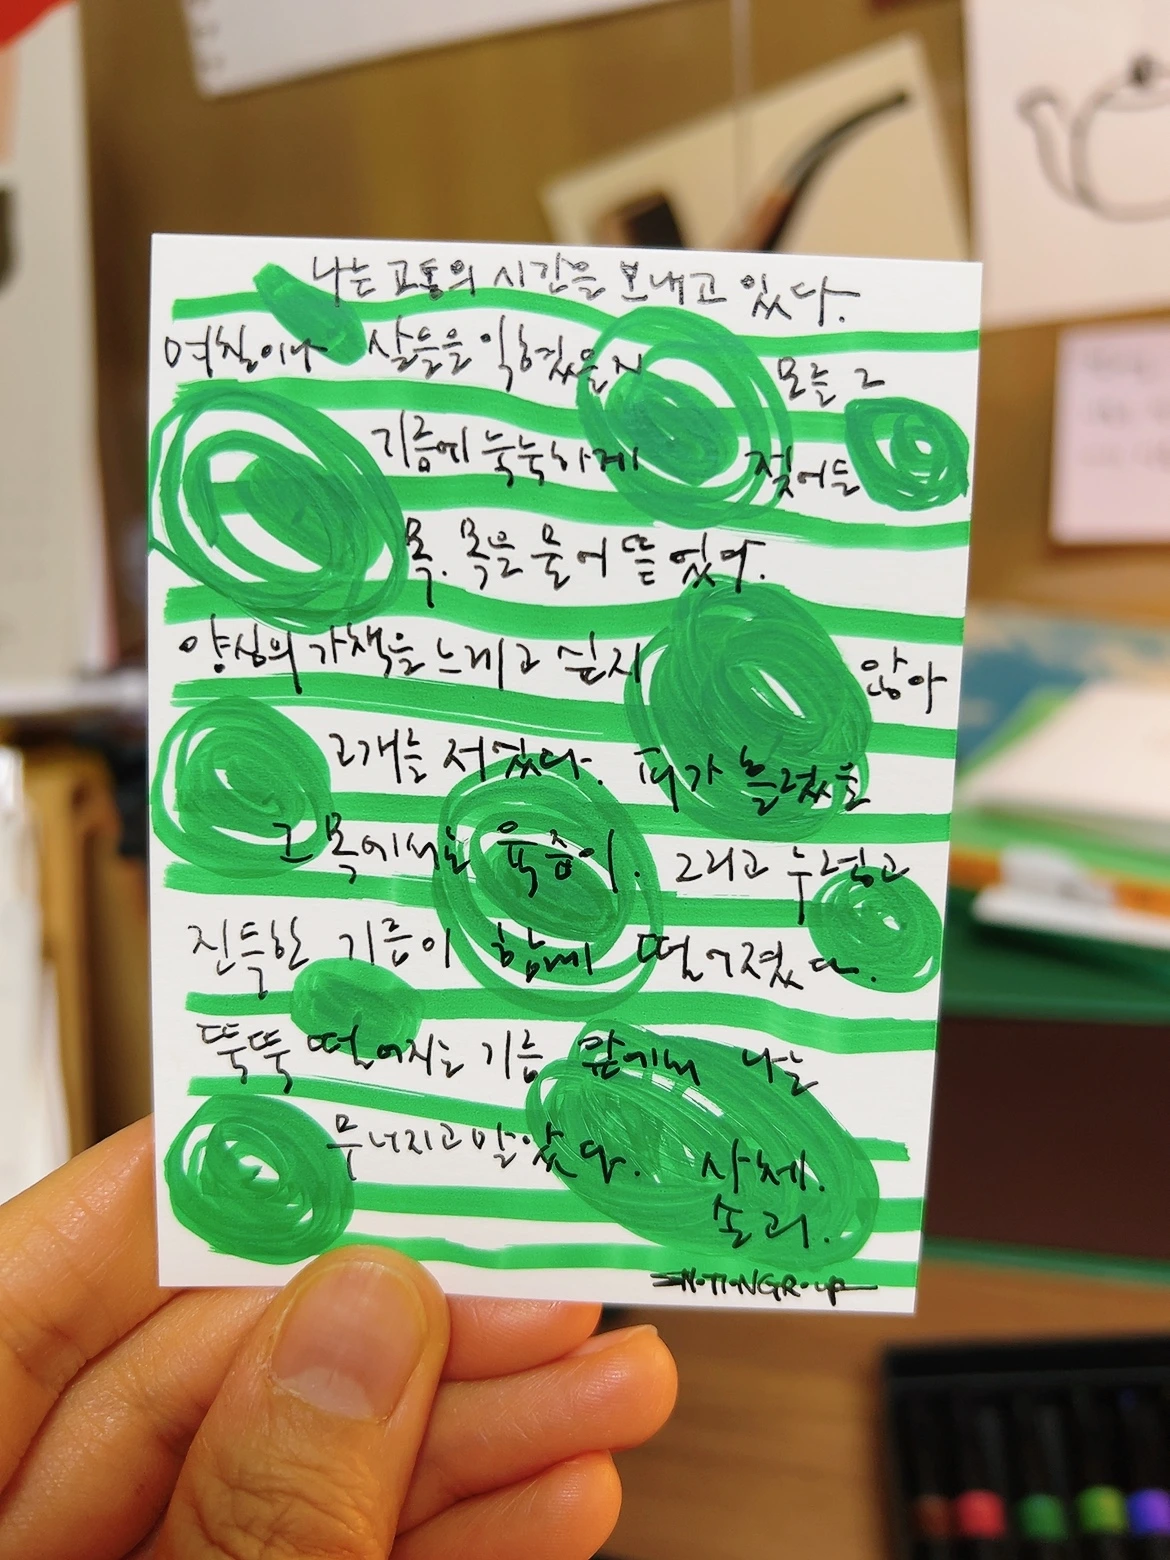 나는 고통의 시간을 보내고 있다.
며칠이나 살들을 익혔을지 모를 그
기름에 눅눅하게 젖어든
목. 목을 물어 뜯었다.
양심의 가책을 느끼고 싶지 않아
고개를 저었다. 피가 흘렀을
그 목에서는 육즙이. 그리고 누렇고
진득한 기름이 함께 떨어졌다.
뚝뚝 떨어지는 기름 앞에서 나는
무너지고 말았다. 사체.
손괴.
EMOTIONGROUP